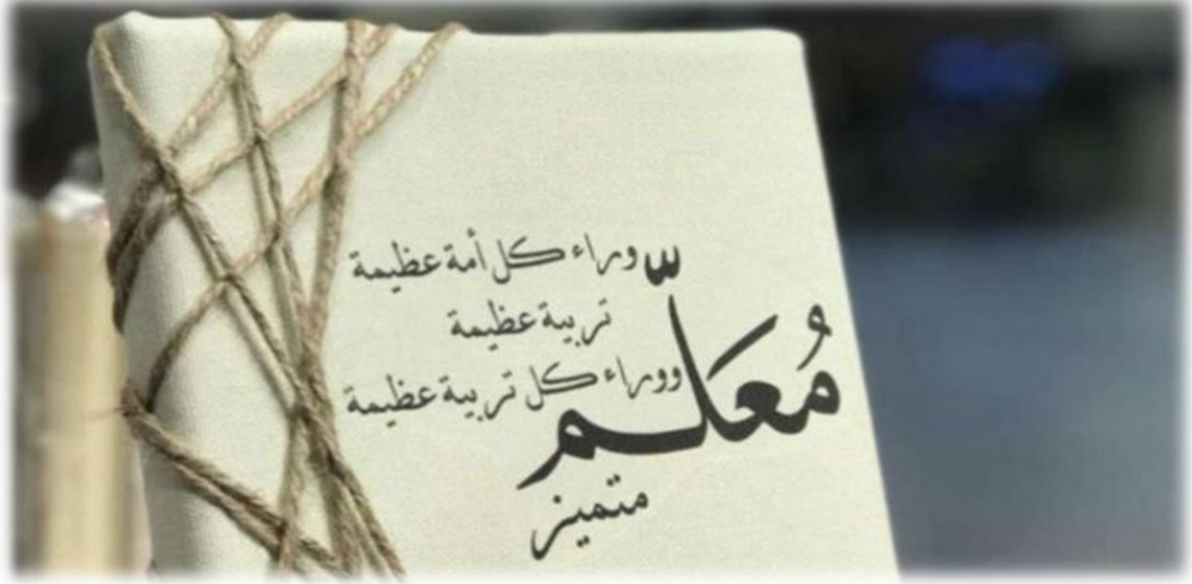 وراء كل أمة عظيمة
تربية عظيمة
ووراء كل تربية عظيمة
مُعَلّم
متميز